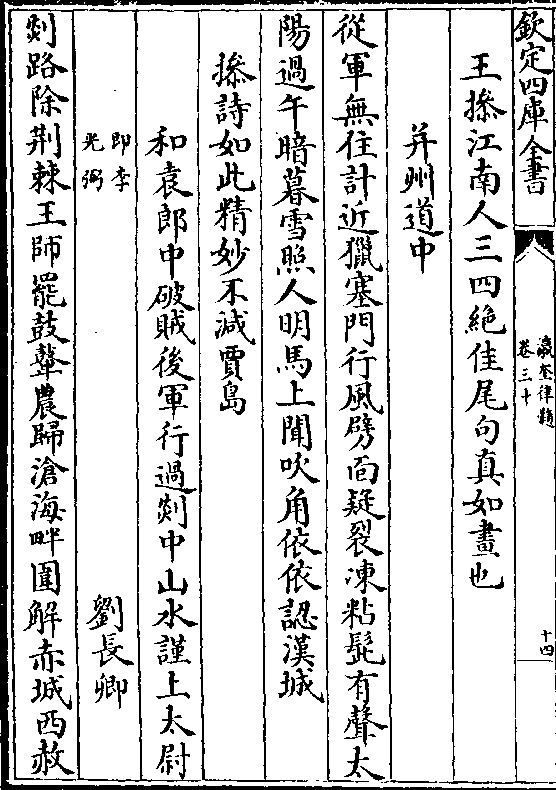 欽定四庫全書
瀛奎律髓
卷三十
十四
王操江南人三四絶佳尾句真如畫也
并州道中
從軍無住計近獵塞門行風劈面疑裂凍粘髭有聲太
陽過午暗暮雪照人明馬上聞吹角依依認漢城
操詩如此精妙不減賈島
和袁郎中破賊後軍行過剡中山水謹上太尉
即李
光弼
劉長卿
剡路除荆棘王師罷鼓鼙農歸滄海畔圍解赤城西赦